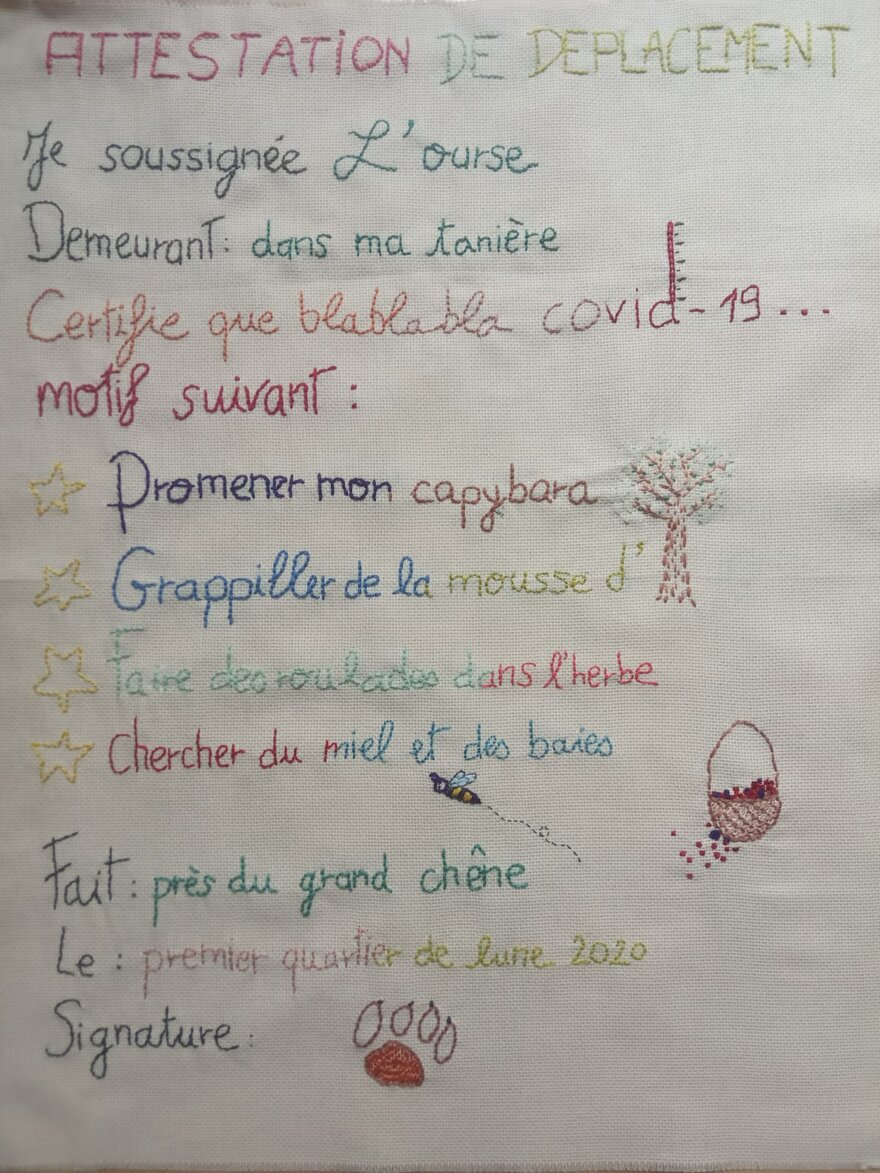 ATTESTATION DE DEPLACEMENT
Je soussignée L'ourse
Demeurant: dans ma tanière
Certifie que blablabla covid-19...
motif suivant :
Promener mon capybara
Grappiller de la mousse d'
Faire des roulades dans l'herbe
Chercher du miel et des baies
Fait : près du grand chêne
Le : premier quartier de lune 2020
Signature :